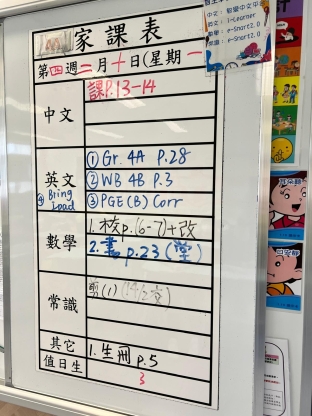 家課表
第四週二月十日(星期一
中文
課P.13-14
英文
① Gr. 4A P.28
② WB 4B P.3
④ Bring Ipad
③ PGE(B) Corr
數學
1. 校p.(6-7)+改
2. 書 p.23 (堂)
常識
剪(1) (14/2交)
其它
1. 生冊 p.5
值日生
3
中文:
英文: i-Learner
數學: e-Smart2.0
常識: e-Smart2.0